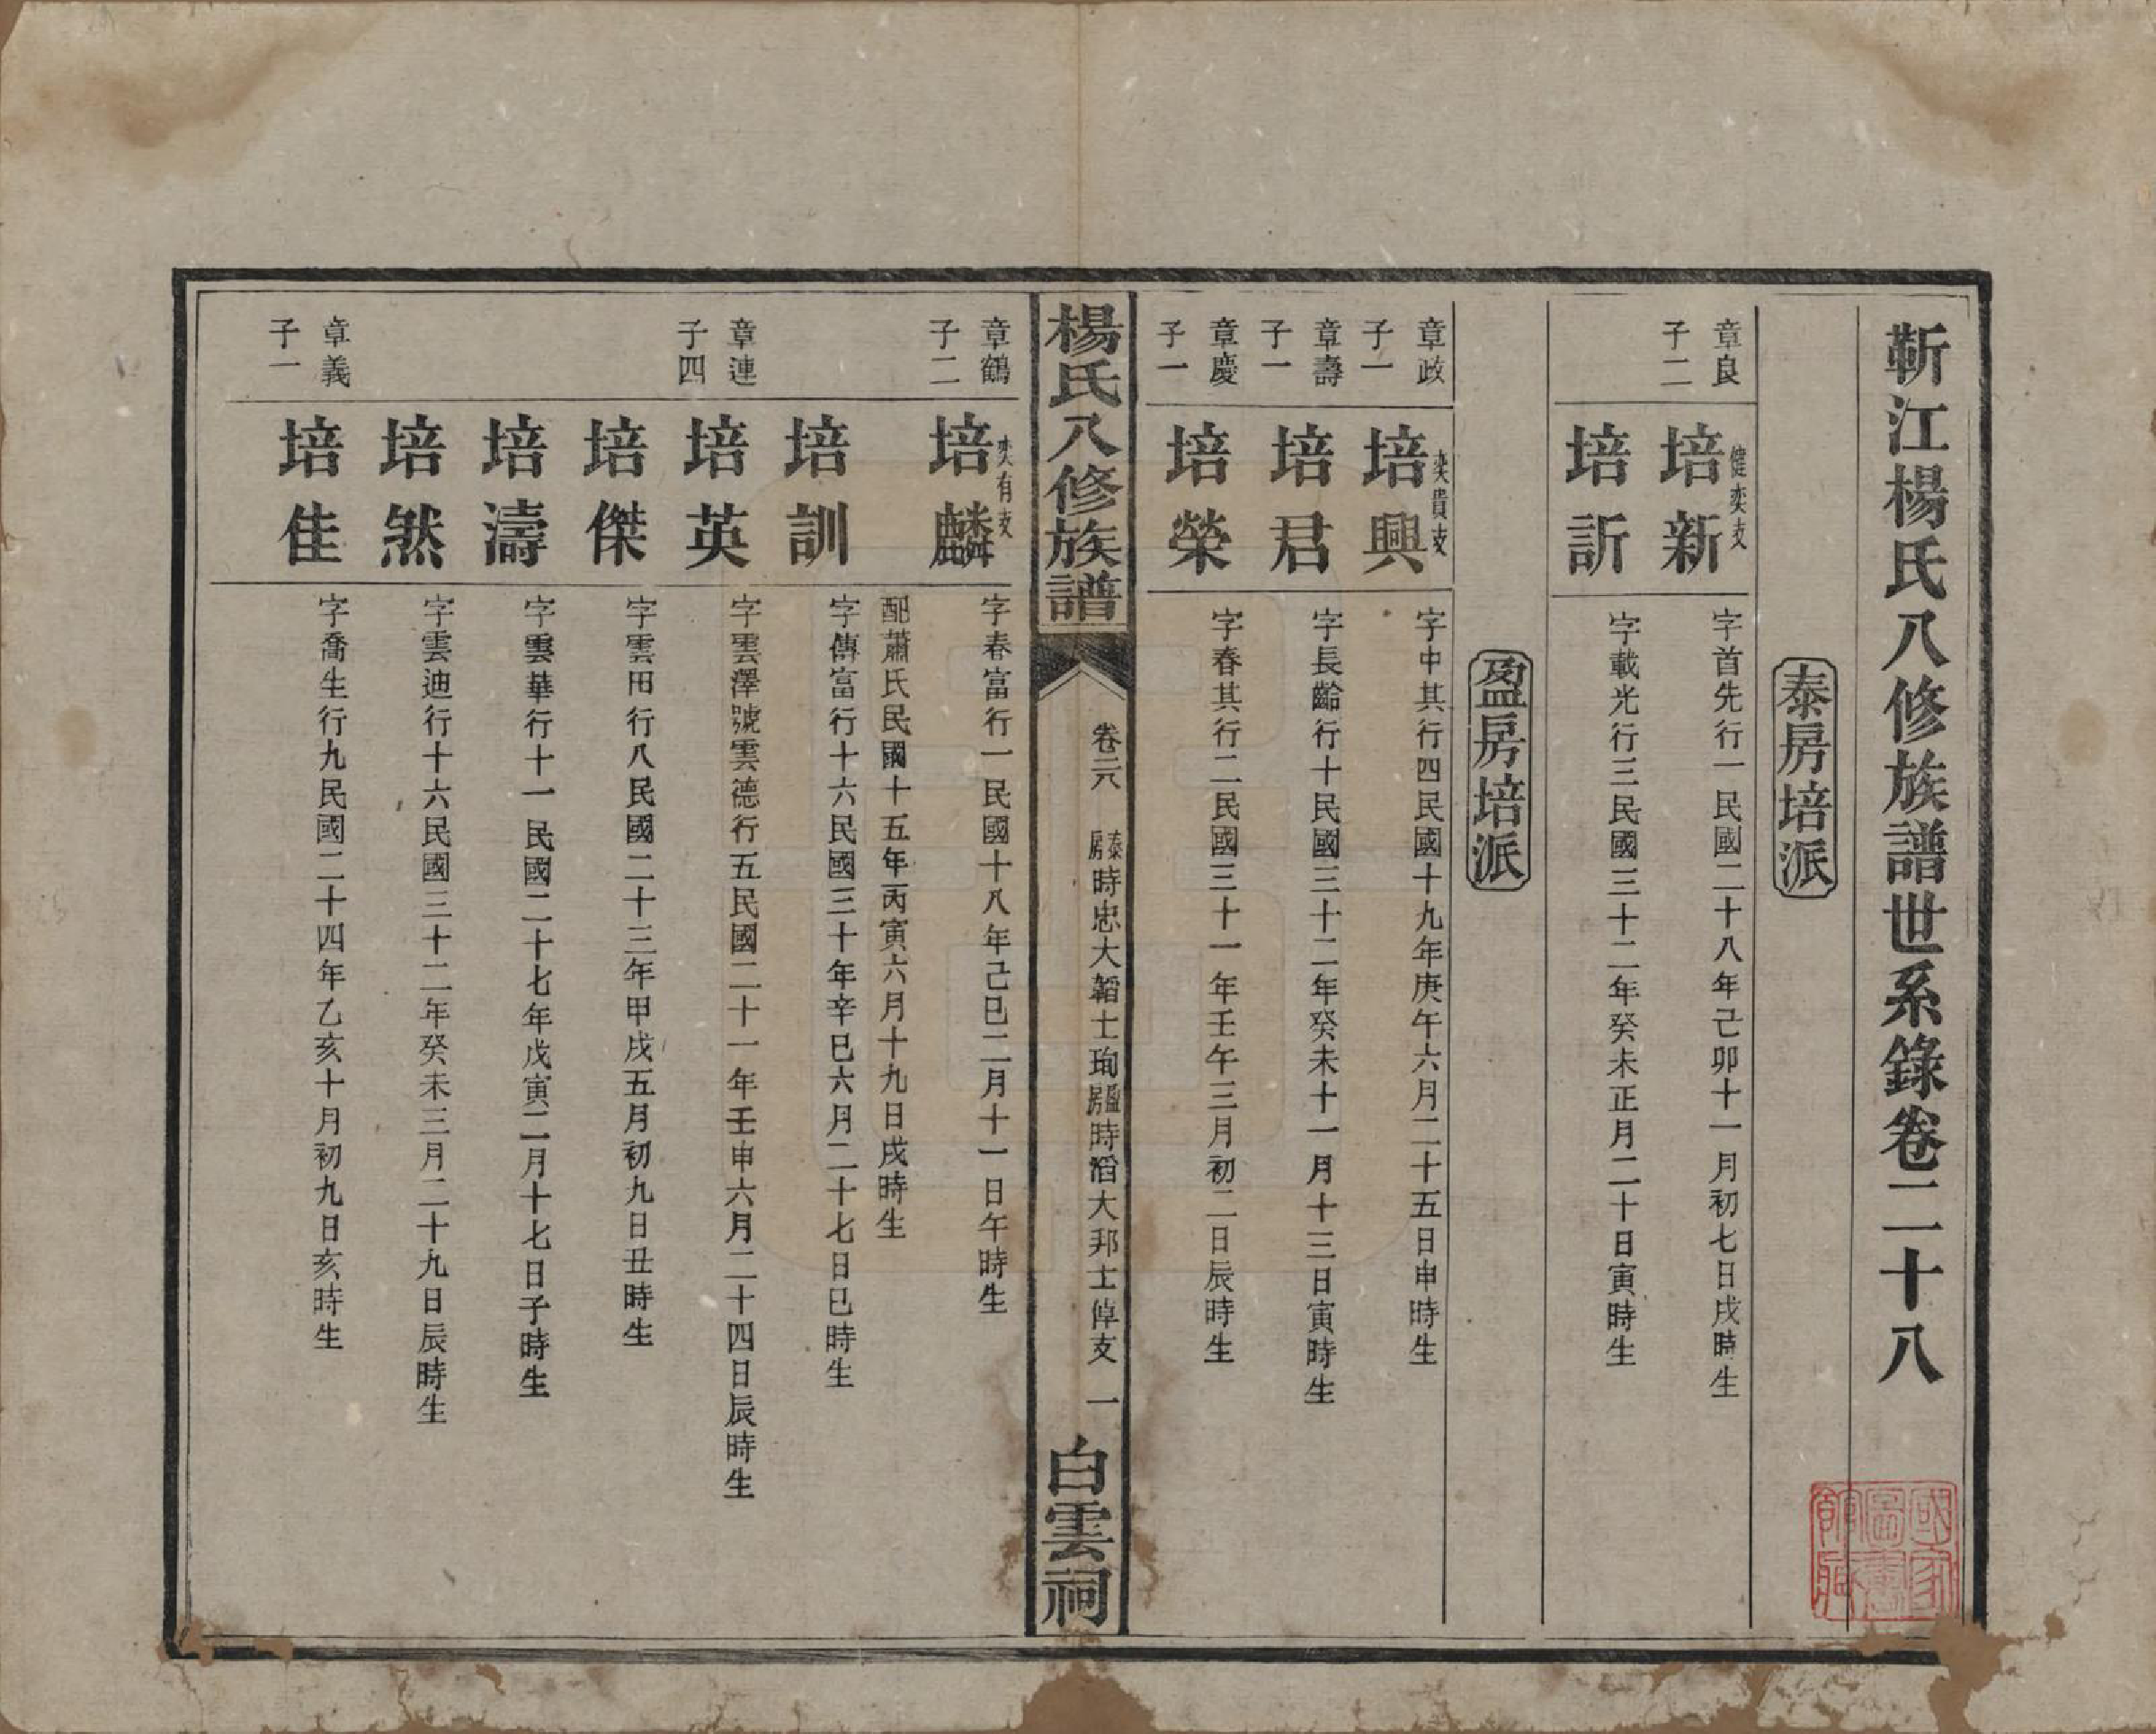 靳江楊氏八修族譜世系錄卷二十八
泰房培派
章良
子二
健奕支
培新
字首先行一民國二十八年己卯十一月初七日戌時生
培訢
字載光行三民國三十二年癸未正月二十日寅時生
盈房培派
章政
子一
奕貴支
培興
字中其行四民國十九年庚午六月二十五日申時生
章壽
子一
培君
字長齡行十民國三十二年癸未十一月十三日寅時生
章慶
子一
培榮
字春其行二民國三十一年壬午三月初二日辰時生
楊氏八修族譜
卷二八
泰房時忠大韜士珣盈房時滔大邦士倬支 一
白雲祠
章鶴
子二
奕有支
培麟
字春富行一民國十八年己巳二月十一日午時生
配蕭氏民國十五年丙寅六月十九日戌時生
培訓
字傳富行十六民國三十年辛巳六月二十七日巳時生
章連
子四
培英
字雲澤號雲德行五民國二十一年壬申六月二十四日辰時生
培傑
字雲田行八民國二十三年甲戌五月初九日丑時生
培濤
字雲華行十一民國二十七年戊寅二月十七日子時生
培煞
字雲迪行十六民國三十二年癸未三月二十九日辰時生
章義
子一
培佳
字喬生行九民國二十四年乙亥十月初九日亥時生
國家
圖書
館藏